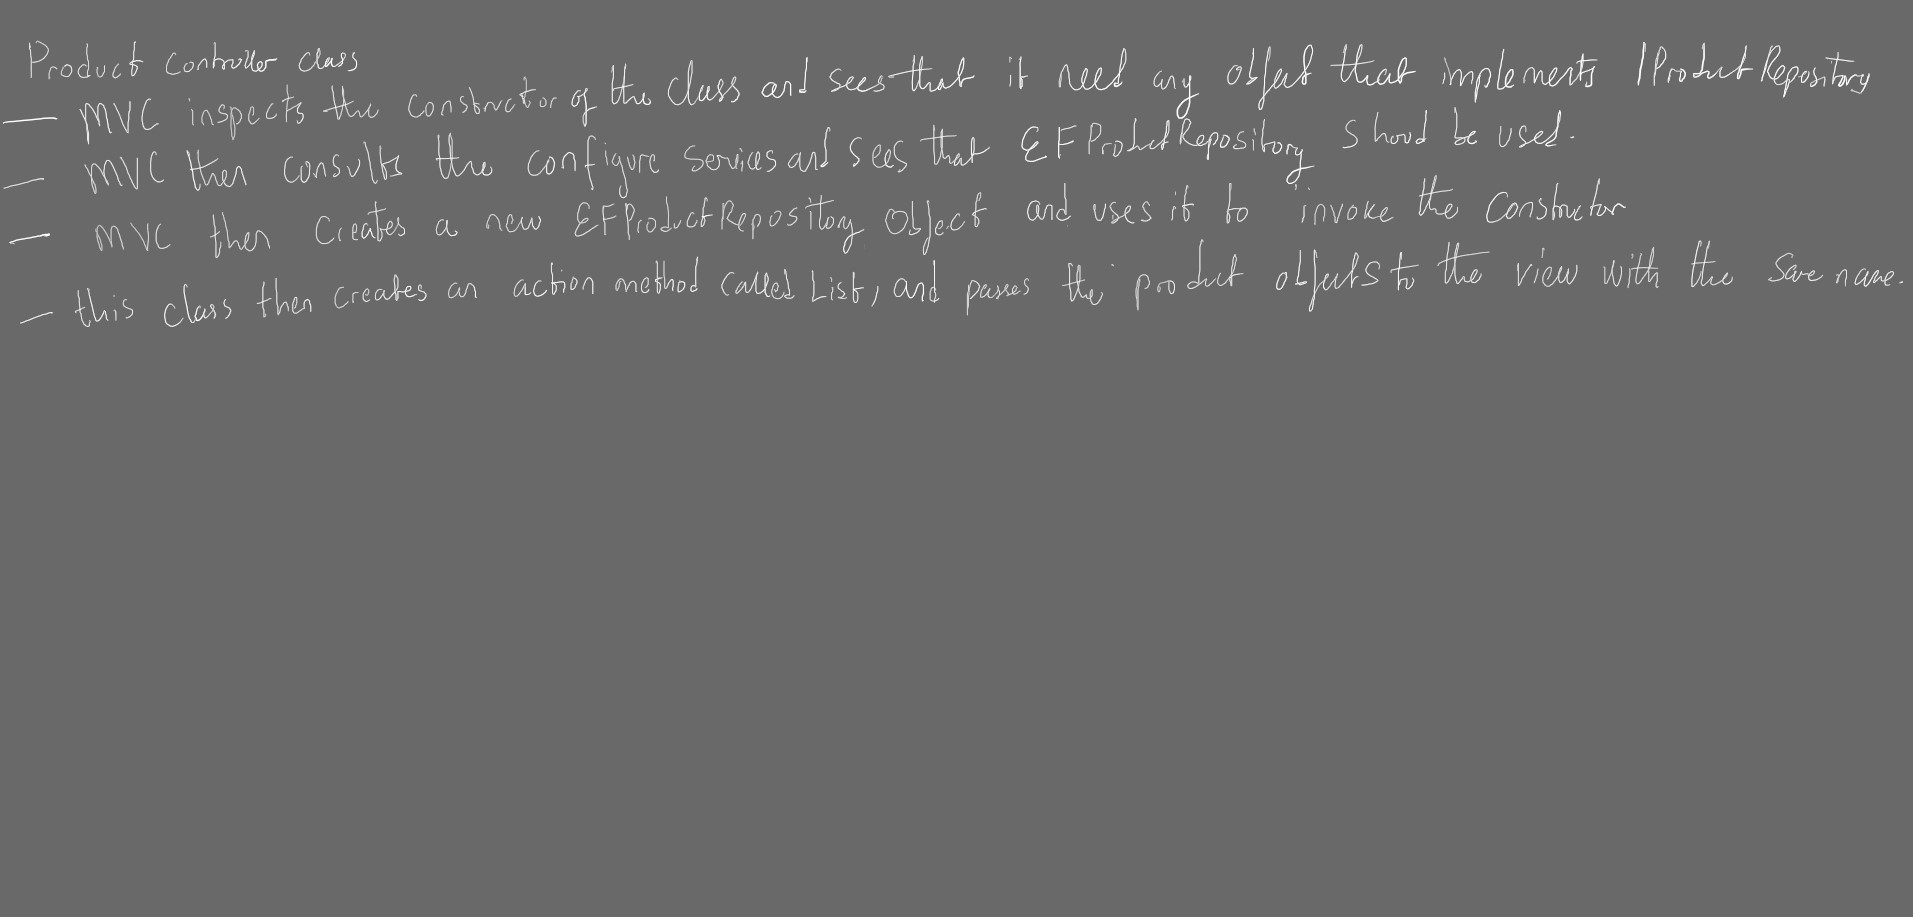 Product Controller class
— MVC inspects the constructor of the class and sees that it need any object that implements IProductRepository
— MVC then consults the configure services and sees that EFProductRepository shoud be used.
— MVC then creates a new EFProductRepository object and uses it to invoke the constructor
— this class then creates an action method called List, and passes the product objects to the view with the same name.